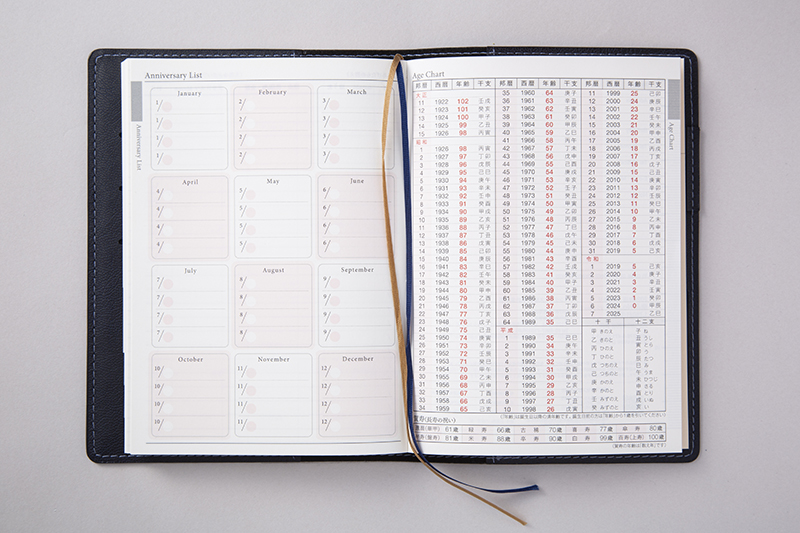 Anniversary List
January
1/
1/
1/
1/
February
2/
2/
2/
2/
March
3/
3/
3/
3/
April
4/
4/
4/
4/
May
5/
5/
5/
5/
June
6/
6/
6/
6/
July
7/
7/
7/
7/
August
8/
8/
8/
8/
September
9/
9/
9/
9/
October
10/
10/
10/
10/
November
11/
11/
11/
11/
December
12/
12/
12/
12/
Anniversary List
Age Chart
邦暦 西暦 年齢 干支
大正
11 1922 102 壬戌
12 1923 101 癸亥
13 1924 100 甲子
14 1925 99 乙丑
15 1926 98 丙寅
昭和
1 1926 98 丙寅
2 1927 97 丁卯
3 1928 96 戊辰
4 1929 95 己巳
5 1930 94 庚午
6 1931 93 辛未
7 1932 92 壬申
8 1933 91 癸酉
9 1934 90 甲戌
10 1935 89 乙亥
11 1936 88 丙子
12 1937 87 丁丑
13 1938 86 戊寅
14 1939 85 己卯
15 1940 84 庚辰
16 1941 83 辛巳
17 1942 82 壬午
18 1943 81 癸未
19 1944 80 甲申
20 1945 79 乙酉
21 1946 78 丙戌
22 1947 77 丁亥
23 1948 76 戊子
24 1949 75 己丑
25 1950 74 庚寅
26 1951 73 辛卯
27 1952 72 壬辰
28 1953 71 癸巳
29 1954 70 甲午
30 1955 69 乙未
31 1956 68 丙申
32 1957 67 丁酉
33 1958 66 戊戌
34 1959 65 己亥
邦暦 西暦 年齢 干支
35 1960 64 庚子
36 1961 63 辛丑
37 1962 62 壬寅
38 1963 61 癸卯
39 1964 60 甲辰
40 1965 59 乙巳
41 1966 58 丙午
42 1967 57 丁未
43 1968 56 戊申
44 1969 55 己酉
45 1970 54 庚戌
46 1971 53 辛亥
47 1972 52 壬子
48 1973 51 癸丑
49 1974 50 甲寅
50 1975 49 乙卯
51 1976 48 丙辰
52 1977 47 丁巳
53 1978 46 戊午
54 1979 45 己未
55 1980 44 庚申
56 1981 43 辛酉
57 1982 42 壬戌
58 1983 41 癸亥
59 1984 40 甲子
60 1985 39 乙丑
61 1986 38 丙寅
62 1987 37 丁卯
63 1988 36 戊辰
64 1989 35 己巳
平成
1 1989 35 己巳
2 1990 34 庚午
3 1991 33 辛未
4 1992 32 壬申
5 1993 31 癸酉
6 1994 30 甲戌
7 1995 29 乙亥
8 1996 28 丙子
9 1997 27 丁丑
10 1998 26 戊寅
邦暦 西暦 年齢 干支
11 1999 25 己卯
12 2000 24 庚辰
13 2001 23 辛巳
14 2002 22 壬午
15 2003 21 癸未
16 2004 20 甲申
17 2005 19 乙酉
18 2006 18 丙戌
19 2007 17 丁亥
20 2008 16 戊子
21 2009 15 己丑
22 2010 14 庚寅
23 2011 13 辛卯
24 2012 12 壬辰
25 2013 11 癸巳
26 2014 10 甲午
27 2015 9 乙未
28 2016 8 丙申
29 2017 7 丁酉
30 2018 6 戊戌
31 2019 5 己亥
令和
1 2019 5 己亥
2 2020 4 庚子
3 2021 3 辛丑
4 2022 2 壬寅
5 2023 1 癸卯
6 2024 0 甲辰
7 2025 乙巳
十干
甲 きのえ
乙 きのと
丙 ひのえ
丁 ひのと
戊 つちのえ
己 つちのと
庚 かのえ
辛 かのと
壬 みずのえ
癸 みずのと
十二支
子 ね
丑 うし
寅 とら
卯 う
辰 たつ
巳 み
午 うま
未 ひつじ
申 さる
酉 とり
戌 いぬ
亥 い
賀寿(長寿の祝い)
還暦(華甲) 61歳 緑寿 66歳 古稀 70歳 喜寿 77歳 傘寿 80歳
米寿 88歳 卒寿 90歳 白寿 99歳 百寿(上寿) 100歳
Age Chart